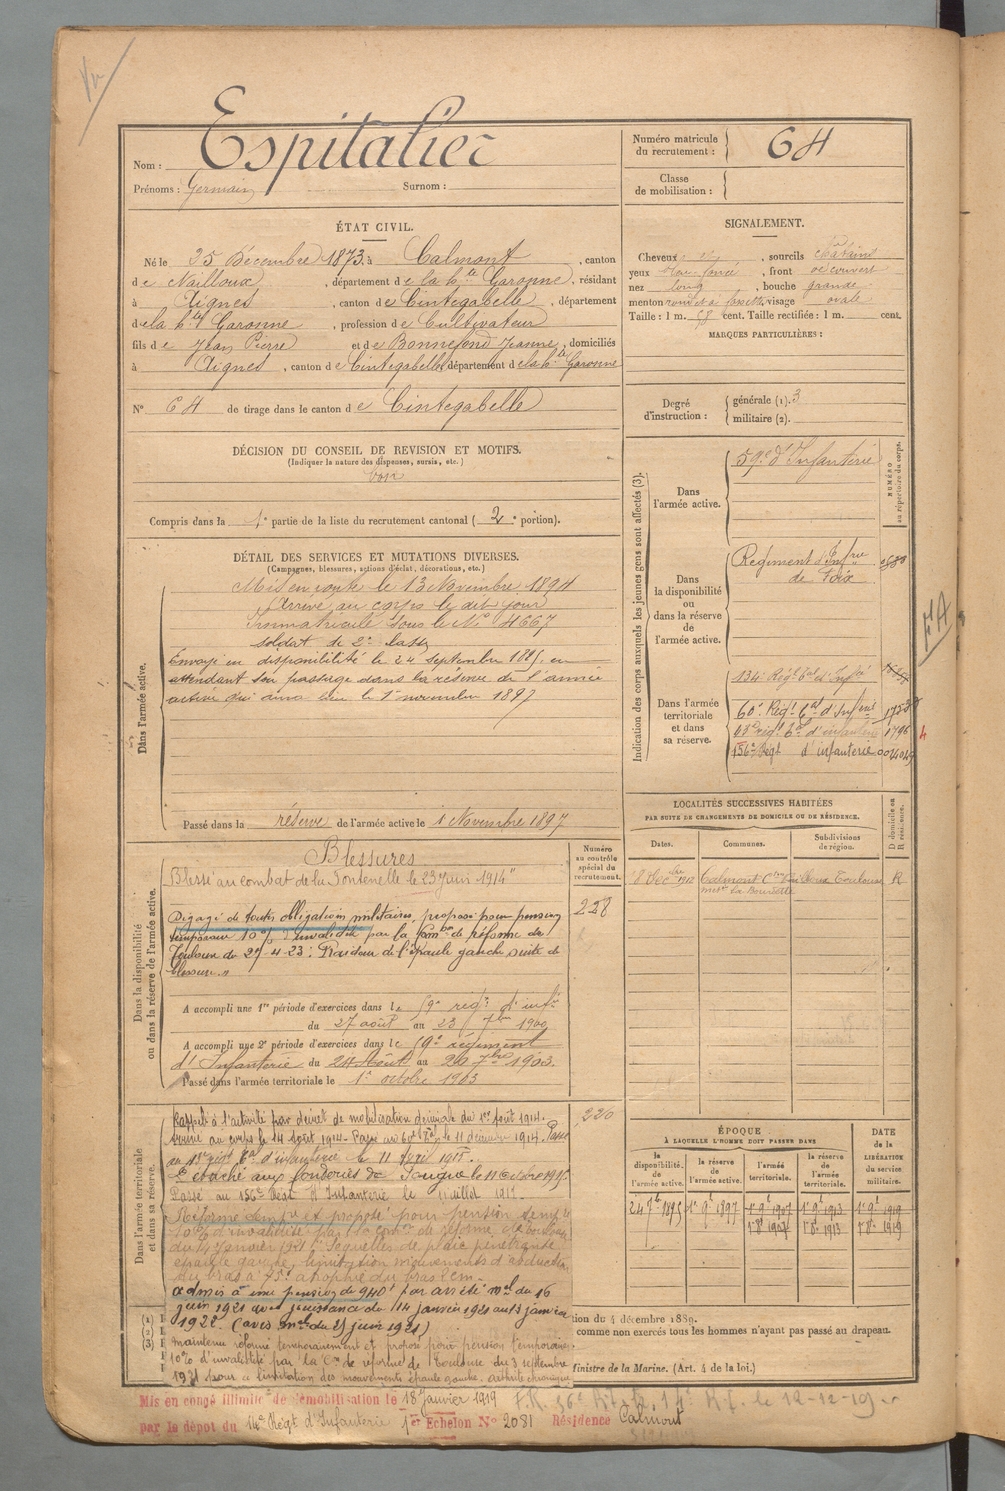 Nom : Espitalier
Prénoms : Germain Surnom :
Numéro matricule du recrutement : 64
Classe de mobilisation :
ÉTAT CIVIL.
Né le 25 Décembre 1873 à Calmont, canton
de Nailloux, département de la Hte Garonne, résidant
à Aignes, canton de Cintegabelle, département
de la Hte Garonne, profession de Cultivateur
fils de Jean Pierre et de Bonnefond Jeanne, domiciliés
à Aignes, canton de Cintegabelle, département de la Hte Garonne
N° 64 de tirage dans le canton de Cintegabelle
SIGNALEMENT.
Cheveux, sourcils châtains
yeux, front découvert
nez long, bouche grande
menton rond et à fossette, visage ovale
Taille : 1 m. 58 cent. Taille rectifiée : 1 m. cent.
MARQUES PARTICULIÈRES :
Degré d'instruction : générale (1). 3
militaire (2).
DÉCISION DU CONSEIL DE REVISION ET MOTIFS.
(Indiquer la nature des dispenses, sursis, etc.)
bon
Compris dans la 1e partie de la liste du recrutement cantonal (2e portion).
DÉTAIL DES SERVICES ET MUTATIONS DIVERSES.
(Campagnes, blessures, actions d'éclat, décorations, etc.)
Dans l'armée active.
Mis en route le 13 Novembre 1894
Arrivé au corps le dit jour
Immatriculé sous le N° 4667
soldat de 2e classe
Envoyé en disponibilité le 24 septembre 1895 en
attendant son passage dans la réserve de l'armée
active qui aura lieu le 1er novembre 1897
Passé dans la réserve de l'armée active le 1 Novembre 1897
Indication des corps auxquels les jeunes gens sont affectés (3).
NUMÉRO au répertoire du corps.
Dans l'armée active.
59e d'Infanterie
Dans la disponibilité ou dans la réserve de l'armée active.
Régiment d'Infrie
de Foix
Dans l'armée territoriale et dans sa réserve.
134e Régt tal d'Infie
60e Régt tal d'Infie
156e Régt d'infanterie
LOCALITÉS SUCCESSIVES HABITÉES
PAR SUITE DE CHANGEMENTS DE DOMICILE OU DE RÉSIDENCE.
D domicile ou R résidence.
Dates. Communes. Subdivisions de région.
Calmont Toulouse R
Dans la disponibilité ou dans la réserve de l'armée active.
Numéro au contrôle spécial du recrutement.
228
Blessures
Blessé au combat de la Fontenelle le 23 Juin 1914"
Dégagé de toutes obligations militaires, proposé pour pension
temporaire 10% d'invalidité par la Comon de réforme de
Toulouse du 27-4-23: Raideur de l'épaule gauche suite de
blessure.
A accompli une 1re période d'exercices dans le 59e régt d'infie
du 27 août au 23 7bre 1900
A accompli une 2e période d'exercices dans le 59e régiment
d'Infanterie du 24 Août au 20 7bre 1903.
Passé dans l'armée territoriale le 1er octobre 1903
220
Dans l'armée territoriale et dans sa réserve.
Rappelé à l'activité par décret de mobilisation générale du 1er Août 1914.
Arrivé au corps le 14 Août 1914. Passé au 60e Tal le 11 décembre 1914. Passé
d'infanterie le 11 1915.
Détaché aux fonderies de le 11 octobre 1915.
Passé au 156e Régt d'Infanterie le 1 juillet 1917.
Réformé tempre et proposé pour pension tempre
10% d'invalidité par la comon de réforme de Toulouse
du 14 Janvier 1921 Séquelles de plaie pénétrante
épaule gauche, limitation mouvements d'abduction
du bras à 75° atrophie du bras 1 cm.
Admis à une pension de 240f par arrêté mel du 16
juin 1921 avec jouissance du 14 janvier 1921 au 13 janvier
1922. (avis mel du 25 juin 1921)
maintenu réformé temporairement et proposé pour pension temporaire
10% d'invalidité par la Con de réforme de Toulouse du 3 septembre
1921 pour limitation des mouvements épaule gauche, arthrite chronique
ÉPOQUE
À LAQUELLE L'HOMME DOIT PASSER DANS
la disponibilité de l'armée active. la réserve de l'armée active. l'armée territoriale. la réserve de l'armée territoriale.
DATE de la LIBÉRATION du service militaire.
24 9b 1895 1er 9b 1897 1er 9b 1907 1er 9b 1913 1er 9b 1919
1er 8b 1907 1er 8b 1913 1er 8b 1919
(1)
(2)
(3)
ion du 4 décembre 1889.
comme non exercés tous les hommes n'ayant pas passé au drapeau.
Ministre de la Marine. (Art. 4 de la loi.)
Mis en congé illimité de démobilisation le 18 Janvier 1919
par le dépôt du 14e Régt d'Infanterie 1er Echelon N° 2081 Résidence Calmont